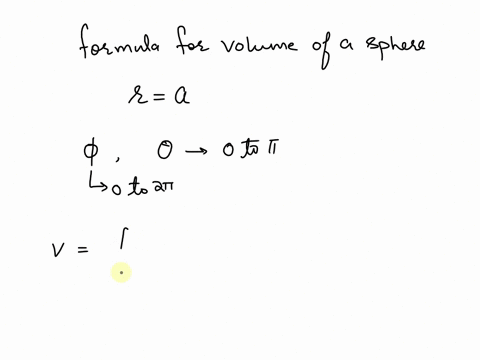 formula for volume of a sphere
r = a
ϕ, θ → 0 to π
↳ 0 to 2π
V = ∫